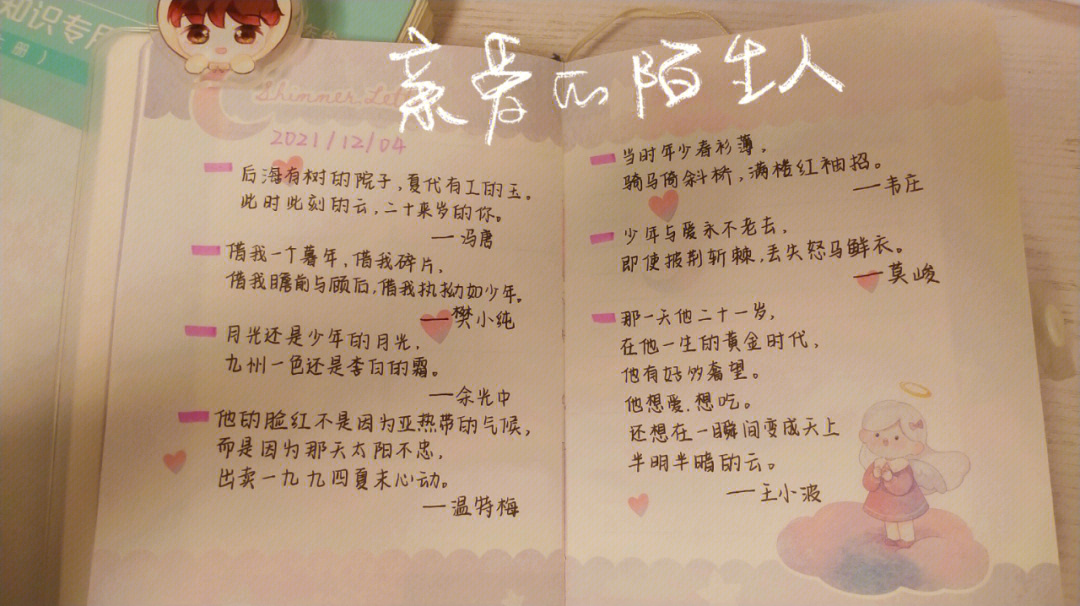 知识专用
册）
亲爱的陌生人
Shimmer Let
2021/12/04
后海有树的院子，夏代有工的玉。
此时此刻的云，二十来岁的你。
—冯唐
借我一个暮年，借我碎片，
借我瞻前与顾后，借我执拗如少年。
—樊小纯
月光还是少年的月光，
九州一色还是李白的霜。
—余光中
他的脸红不是因为亚热带的气候，
而是因为那天太阳不忠，
出卖一九九四夏末心动。
—温特梅
当时年少春衫薄，
骑马倚斜桥，满楼红袖招。
—韦庄
少年与爱永不老去，
即使披荆斩棘，丢失怒马鲜衣。
—莫峻
那一天他二十一岁，
在他一生的黄金时代，
他有好多奢望。
他想爱，想吃。
还想在一瞬间变成天上
半明半暗的云。
—王小波